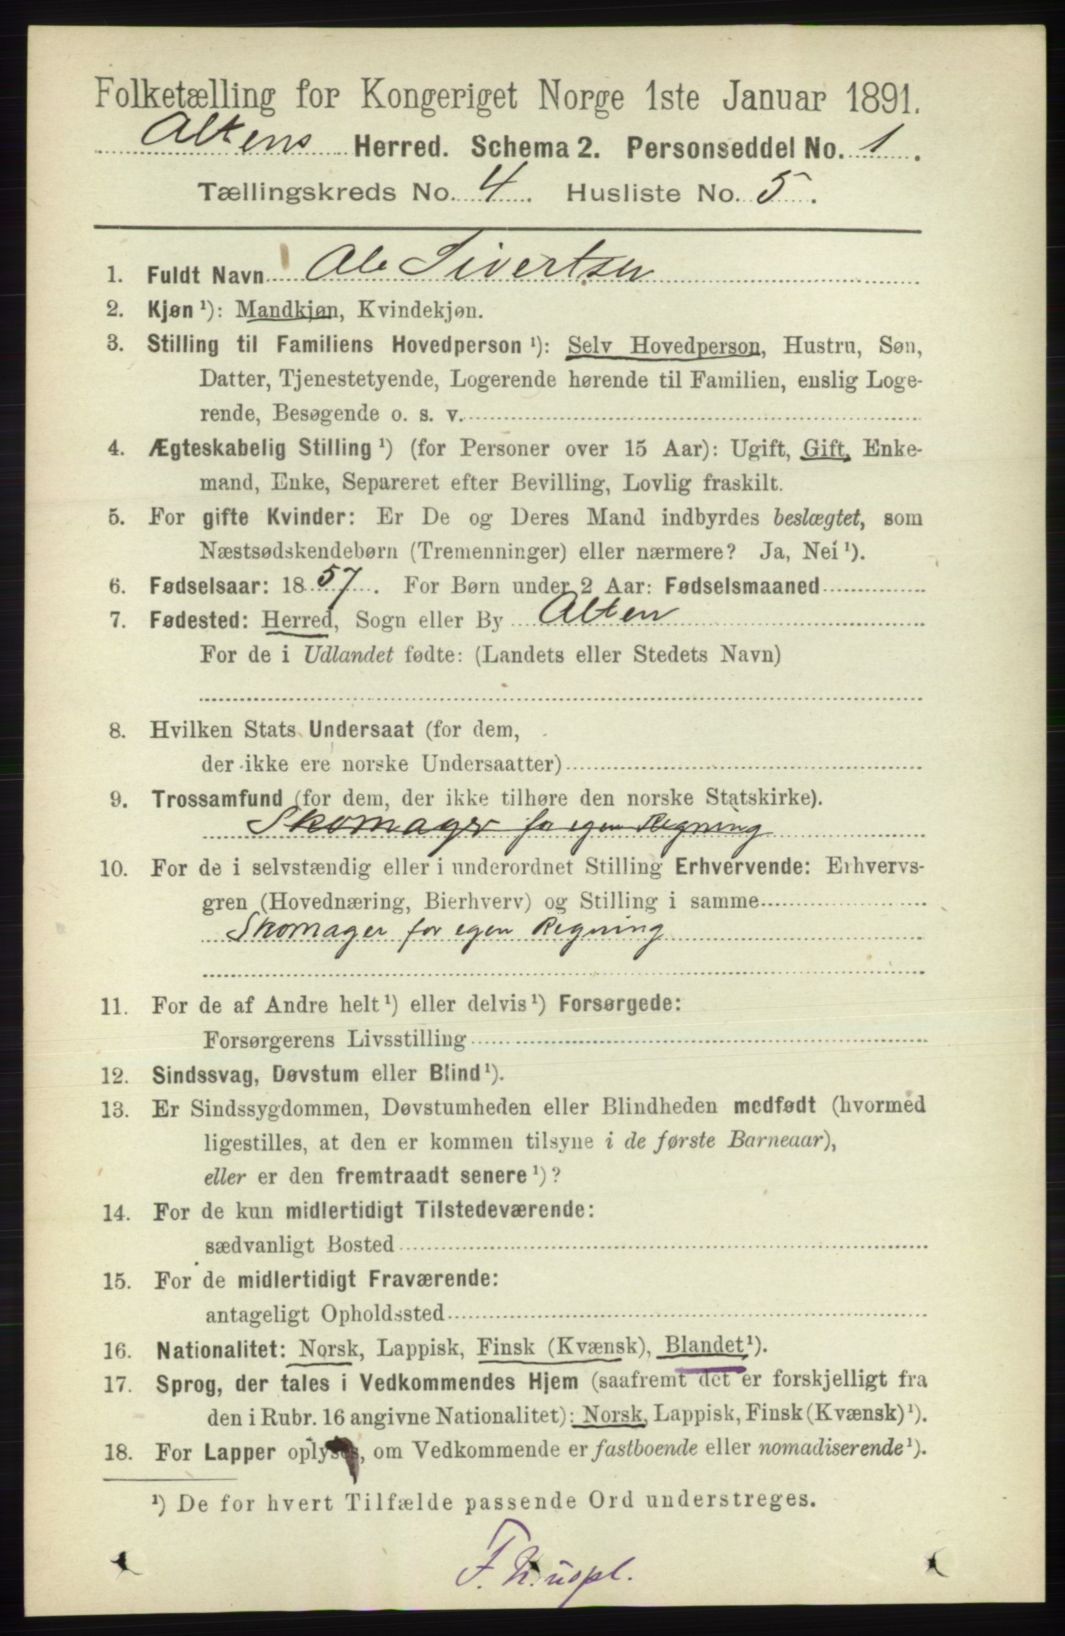 Folketælling for Kongeriget Norge 1ste Januar 1891.
Altens Herred. Schema 2. Personseddel No. 1.
Tællingskreds No. 4. Husliste No. 5.
1. Fuldt Navn Ole Sivertsen
2. Kjøn ¹): Mandkjøn, Kvindekjøn.
3. Stilling til Familiens Hovedperson ¹): Selv Hovedperson, Hustru, Søn,
Datter, Tjenestetyende, Logerende hørende til Familien, enslig Loge-
rende, Besøgende o. s. v.
4. Ægteskabelig Stilling ¹) (for Personer over 15 Aar): Ugift, Gift, Enke-
mand, Enke, Separeret efter Bevilling, Lovlig fraskilt.
5. For gifte Kvinder: Er De og Deres Mand indbyrdes beslægtet, som
Næstsødskendebørn (Tremenninger) eller nærmere? Ja, Nei ¹).
6. Fødselsaar: 1857. For Børn under 2 Aar: Fødselsmaaned
7. Fødested: Herred, Sogn eller By Alten
For de i Udlandet fødte: (Landets eller Stedets Navn)
8. Hvilken Stats Undersaat (for dem,
der ikke ere norske Undersaatter)
9. Trossamfund (for dem, der ikke tilhøre den norske Statskirke).
Skomager for egen Regning
10. For de i selvstændig eller i underordnet Stilling Erhvervende: Erhvervs-
gren (Hovednæring, Bierhverv) og Stilling i samme
Skomager for egen Regning
11. For de af Andre helt ¹) eller delvis ¹) Forsørgede:
Forsørgerens Livsstilling
12. Sindssvag, Døvstum eller Blind ¹).
13. Er Sindssygdommen, Døvstumheden eller Blindheden medfødt (hvormed
ligestilles, at den er kommen tilsyne i de første Barneaar),
eller er den fremtraadt senere ¹)?
14. For de kun midlertidigt Tilstedeværende:
sædvanligt Bosted
15. For de midlertidigt Fraværende:
antageligt Opholdssted
16. Nationalitet: Norsk, Lappisk, Finsk (Kvænsk), Blandet ¹).
17. Sprog, der tales i Vedkommendes Hjem (saafremt det er forskjelligt fra
den i Rubr. 16 angivne Nationalitet): Norsk, Lappisk, Finsk (Kvænsk) ¹).
18. For Lapper oplyses, om Vedkommende er fastboende eller nomadiserende ¹).
¹) De for hvert Tilfælde passende Ord understreges.